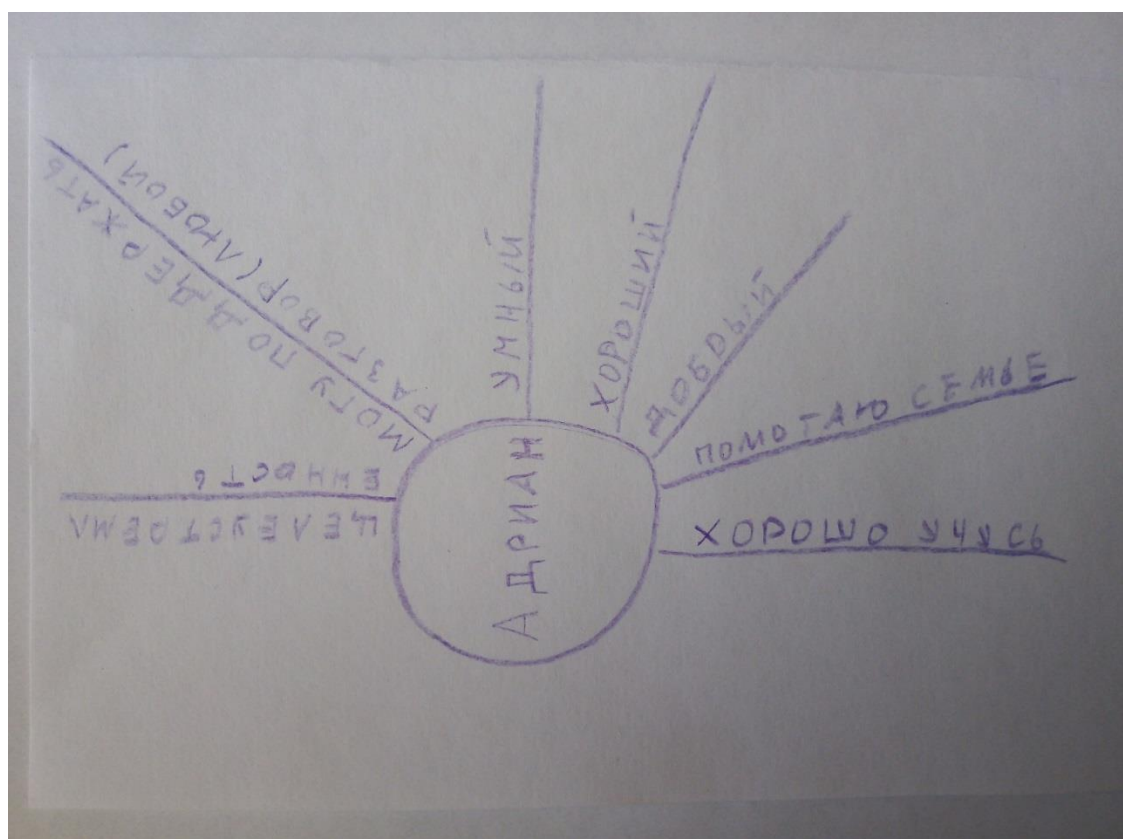 АДРИАН
ЦЕЛЕУСТРЕМЛ
ЕННОСТЬ
МОГУ ПОДДЕРЖАТЬ
РАЗГОВОР (ЛЮБОЙ)
УМНЫЙ
ХОРОШИЙ
ДОБРЫЙ
ПОМОГАЮ СЕМЬЕ
ХОРОШО УЧУСЬ